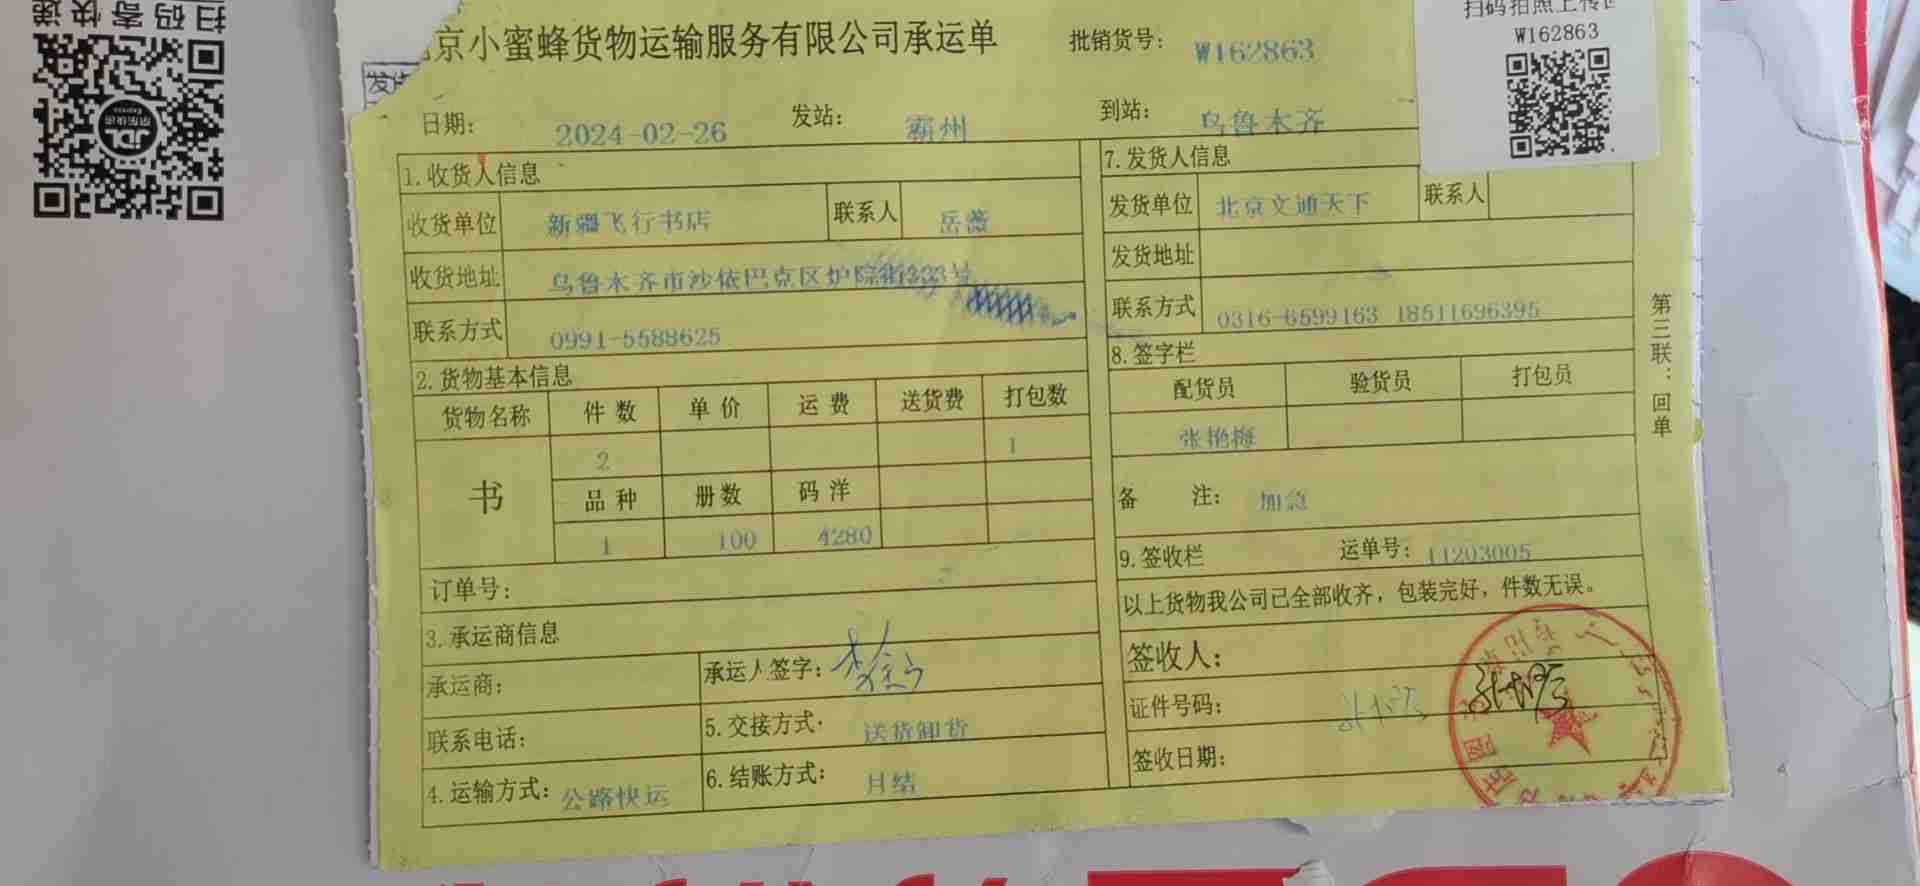 扫码寄快递
京小蜜蜂货物运输服务有限公司承运单
批销货号: W162863
扫码拍照上传
W162863
日期: 2024-02-26 发站: 霸州 到站: 乌鲁木齐
1.收货人信息
收货单位 新疆飞行书店 联系人 岳薇
收货地址 乌鲁木齐市沙依巴克区炉院街333号
联系方式 0991-5588625
2.货物基本信息
货物名称 件数 单价 运费 送货费 打包数
书 2 1
品种 册数 码洋
1 100 4280
订单号:
3.承运商信息
承运商: 承运人签字:
联系电话: 5.交接方式: 送货卸货
4.运输方式: 公路快运 6.结账方式: 月结
7.发货人信息
发货单位 北京文通天下 联系人
发货地址
联系方式 0316-6599163 18511696395
8.签字栏
配货员 验货员 打包员
张艳梅
备 注: 加急
9.签收栏 运单号: 11203005
以上货物我公司已全部收齐，包装完好，件数无误。
签收人:
证件号码:
签收日期:
第三联：回单